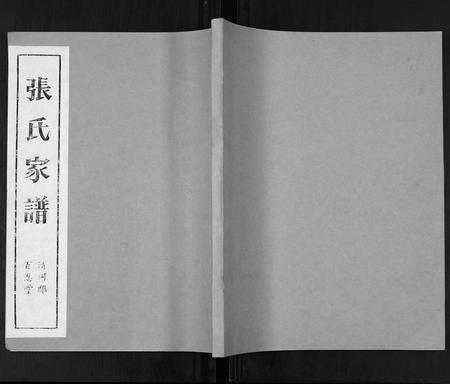 張氏家譜
清河郡
百忍堂